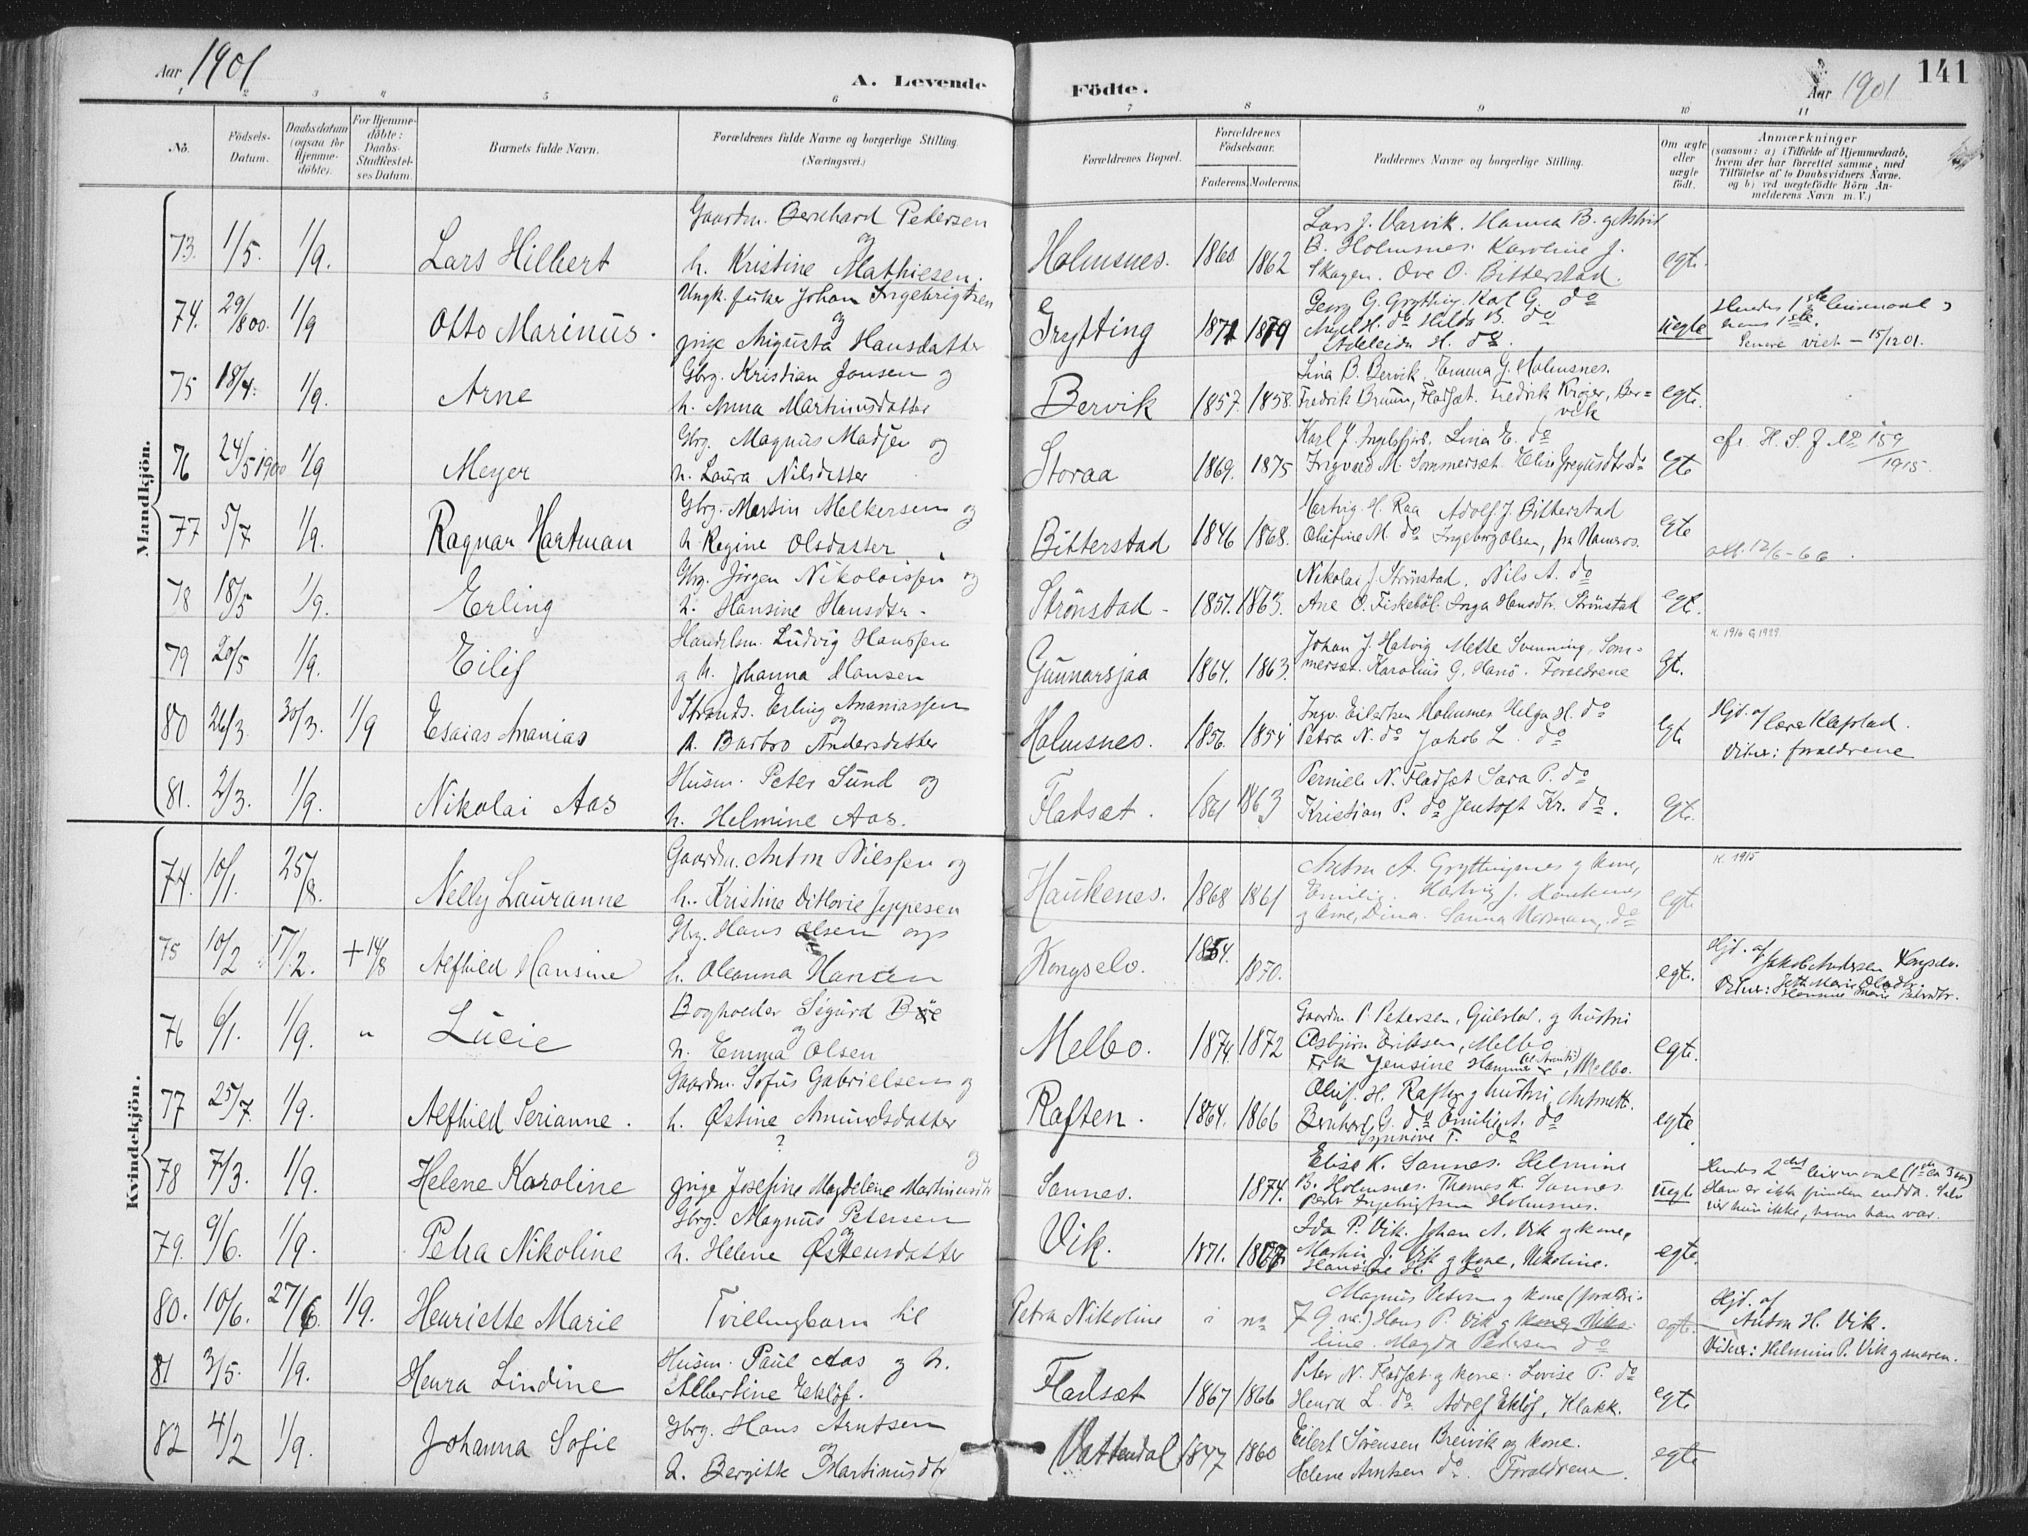 Aar 1901
A. Levende Födte.
Aar 1901
141
1 2 3 4 5 6 7 8 9 10 11
No.
Födsels-Datum.
Daabsdatum (ogsaa for Hjemme-döbte).
For Hjemme-döbte: Daabs-Stadfæstel-ses Datum.
Barnets fulde Navn.
Forældrenes fulde Navne og borgerlige Stilling (Næringsvei.)
Forældrenes Bopæl.
Forældrenes Födselsaar.
Faderens. Moderens.
Faddernes Navne og borgerlige Stilling.
Om ægte eller uægte födt.
Anmærkninger
(saasom: a) i Tilfælde af Hjemmedaab, hvem der har forrettet samme, med Tilföielse af to Daabsvidners Navne. og b) ved uægtefödte Börn An-melderens Navn m. V.)
Mandkjön.
73. 1/5. 1/9. Lars Hilbert
Gaardm. Bernhard Petersen og
h. Kristine Mathiesen.
Holmsnes. 1860 1862
Lars J. Varvik. Hanna B. og Astrid
B. Holmsnes. Karoline J.
Skagen. Ove O. Bitterstad.
egte.
74. 29/8 00. 1/9 Otto Marinus.
Ungk. fisker Johan Ingebrigtsen og
pige Augusta Hansdatter
Grytting 1871 1879
Georg G. Grytting. Karl G. do
Axel H. do Hilda B. do
Adeleide H. do
uegte
Hendes 1ste leiermaal,
hans 1ste.
Senere viet - 15/12 01.
75 18/4. 1/9. Arne
Gbrg. Kristian Jensen og
h. Anna Martinusdatter
Bervik 1857. 1858.
Lina B. Bervik. Emma G. Holmsnes.
Fredrik Bruun, Fladset. Fredrik Krøger, Ber=
vik
egte.
76 24/5 1900 1/9 Meyer
Gbrg. Magnus Madsen og
h. Laura Nilsdatter
Storaa 1869. 1875
Karl J. Ingelsfjord. Lina E. do
Ingvard M. Sommerset. Elise Gregusdtr. do
egte
cfr. H. S. J No 159/1915.
77 5/7 1/9. Ragnar Hartman
Gbrg. Martin Melkersen og
h. Regine Olsdatter
Bitterstad 1846 1868.
Hartvig H. Raa Adolf J. Bitterstad
Olefine M. do Ingeborg Olsen, fra Hamros.
egte
att. 12/6-66.
78 18/5 1/9. Erling
Gbrg. Jörgen Nikolaissen og
h. Hansine Hansdtr.
Strönstad - 1857. 1863.
Nikolai J. Strönstad. Nils A. do
Ane O. Fiskeböl. Inga Hansdtr. Strönstad
egt.
79 20/5 1/9. Eilif
Handelsm. Ludvig Hanssen
og h. Johanna Hansen
Gunnarsjaa 1864. 1863.
Johan J. Hatvig Mette Svenning, Som=
merset. Karolius G. Hanö. Forældrene
egt.
K. 1916 G 1929
80 26/3 30/3. 1/9 Esaias Ananias
Strands. Erling Ananiassen og
h. Barbro Andersdatter
Holmsnes. 1856. 1854
Ingv. Eilertsen Holmsnes Helga H. do
Petra N. do Jakob L. do
egt
Hjd. af lærer Klafstad.
Vidner: forældrene
81. 2/3. 1/9. Nikolai Aas
Husm. Peter Sund og
h. Helmine Aas.
Fladsæt. 1861 1863
Pernille N. Fladset Sara P. do
Kristian P. do Jentoft Kr. do.
egt.
Kvindekjön.
74. 10/1. 25/8. Nelly Lauranne
Gaardm. Anton Nilssen og
h. Kristine Ditlovie Jeppesen
Haukenes. 1868 1861
Anton A. Gryttingsnes og kone,
Emilie. Hatvig J. Haukenes
og kone, Dina. Sanna Normann, do
egte.
K. 1915
75 10/2 17/2. + 14/8 Alfhild Hansine
Gbrg. Hans Olsen og
h. Oleanna Hansen
Kongselv. 1854. 1870.
egte.
Hjd. af Jakob Andersen Kongselv.
76 6/1. 1/9. " Lucie
Bogholder Sigurd Böe og
h. Emma Olsen
Melbo. 1874. 1872
Gaardm. P. Petersen, Gulstad. og hustru
Asbjörn Eriksen, Melbo
Frk Jensine Hammer, Melbo.
egte.
77 25/7. 1/9. Alfhild Serianne.
Gaardm. Sofus Gabrielsen og
h. Østine Amundsdatter
Raften. 1864. 1866
Oluf. H. Raften og hustru, Antonette.
Bernhard G. do Emilie A. do
Synnöve T. do
egte.
78 7/3. 1/9. Helene Karoline
? og
pige Josefine Magdelene Martinusdtr
Sannes. 1874.
Elise K. Sannes. Helmine
B. Holmsnes. Thomas K. Sannes.
Peder Ingebrigtsen Holmsnes.
uegt
Hendes 2det leiermaal
Han er ikke funden endda. Selv
ved hun ikke, hvem han var.
79. 9/6. 1/9. Petra Nikoline
Gbrg. Magnus Petersen og
h. Helene Østensdatter
Vik. 1871. 1867
Ida P. Vik. Johan A. Vik og kone,
Martin J. Vik og kone, Nikoline.
Hansine H. do
egte.
80. 10/6. 27/6. 1/9. Henriette Marie
Tvillingbarn til Petra Nikoline i no 79
Magnus Peters. og kone (foræld-
re) Hans P. Vik og kone, Niko-
line. Magda Petersen do
egte.
Hjd. af
Anton H. Vik.
Vidner: Helmine P. Vik og moren.
81 3/5. 1/9. Henra Lindine
Husm. Paul Aas og h.
Albertine Eklöf.
Fladsæt 1867 1866
Peter N. Fladset og kone. Lovise P. do
Henra L. do. Adolf Eklöf, Klakk.
egte
82 4/2 1/9. Johanna Sofie
Gbrg. Hans Arntsen og
h. Bergitte Martinusdtr
Vattendal 1847 1860
Eilert Sörensen Breivik og kone.
Helene Arntsen do. Forældrene.
egte